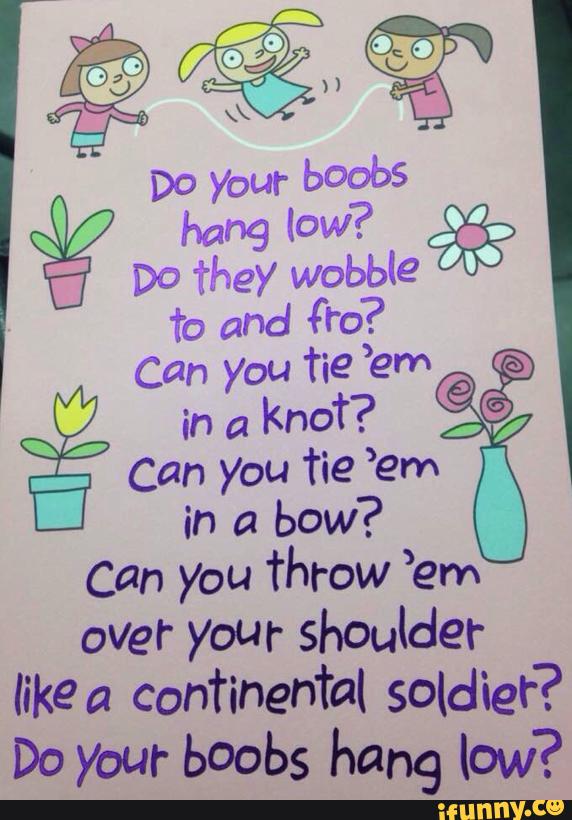 Do your boobs
hang low?
Do they wobble
to and fro?
Can you tie 'em
in a knot?
Can you tie 'em
in a bow?
Can you throw 'em
over your shoulder
like a continental soldier?
Do your boobs hang low?
ifunny.co